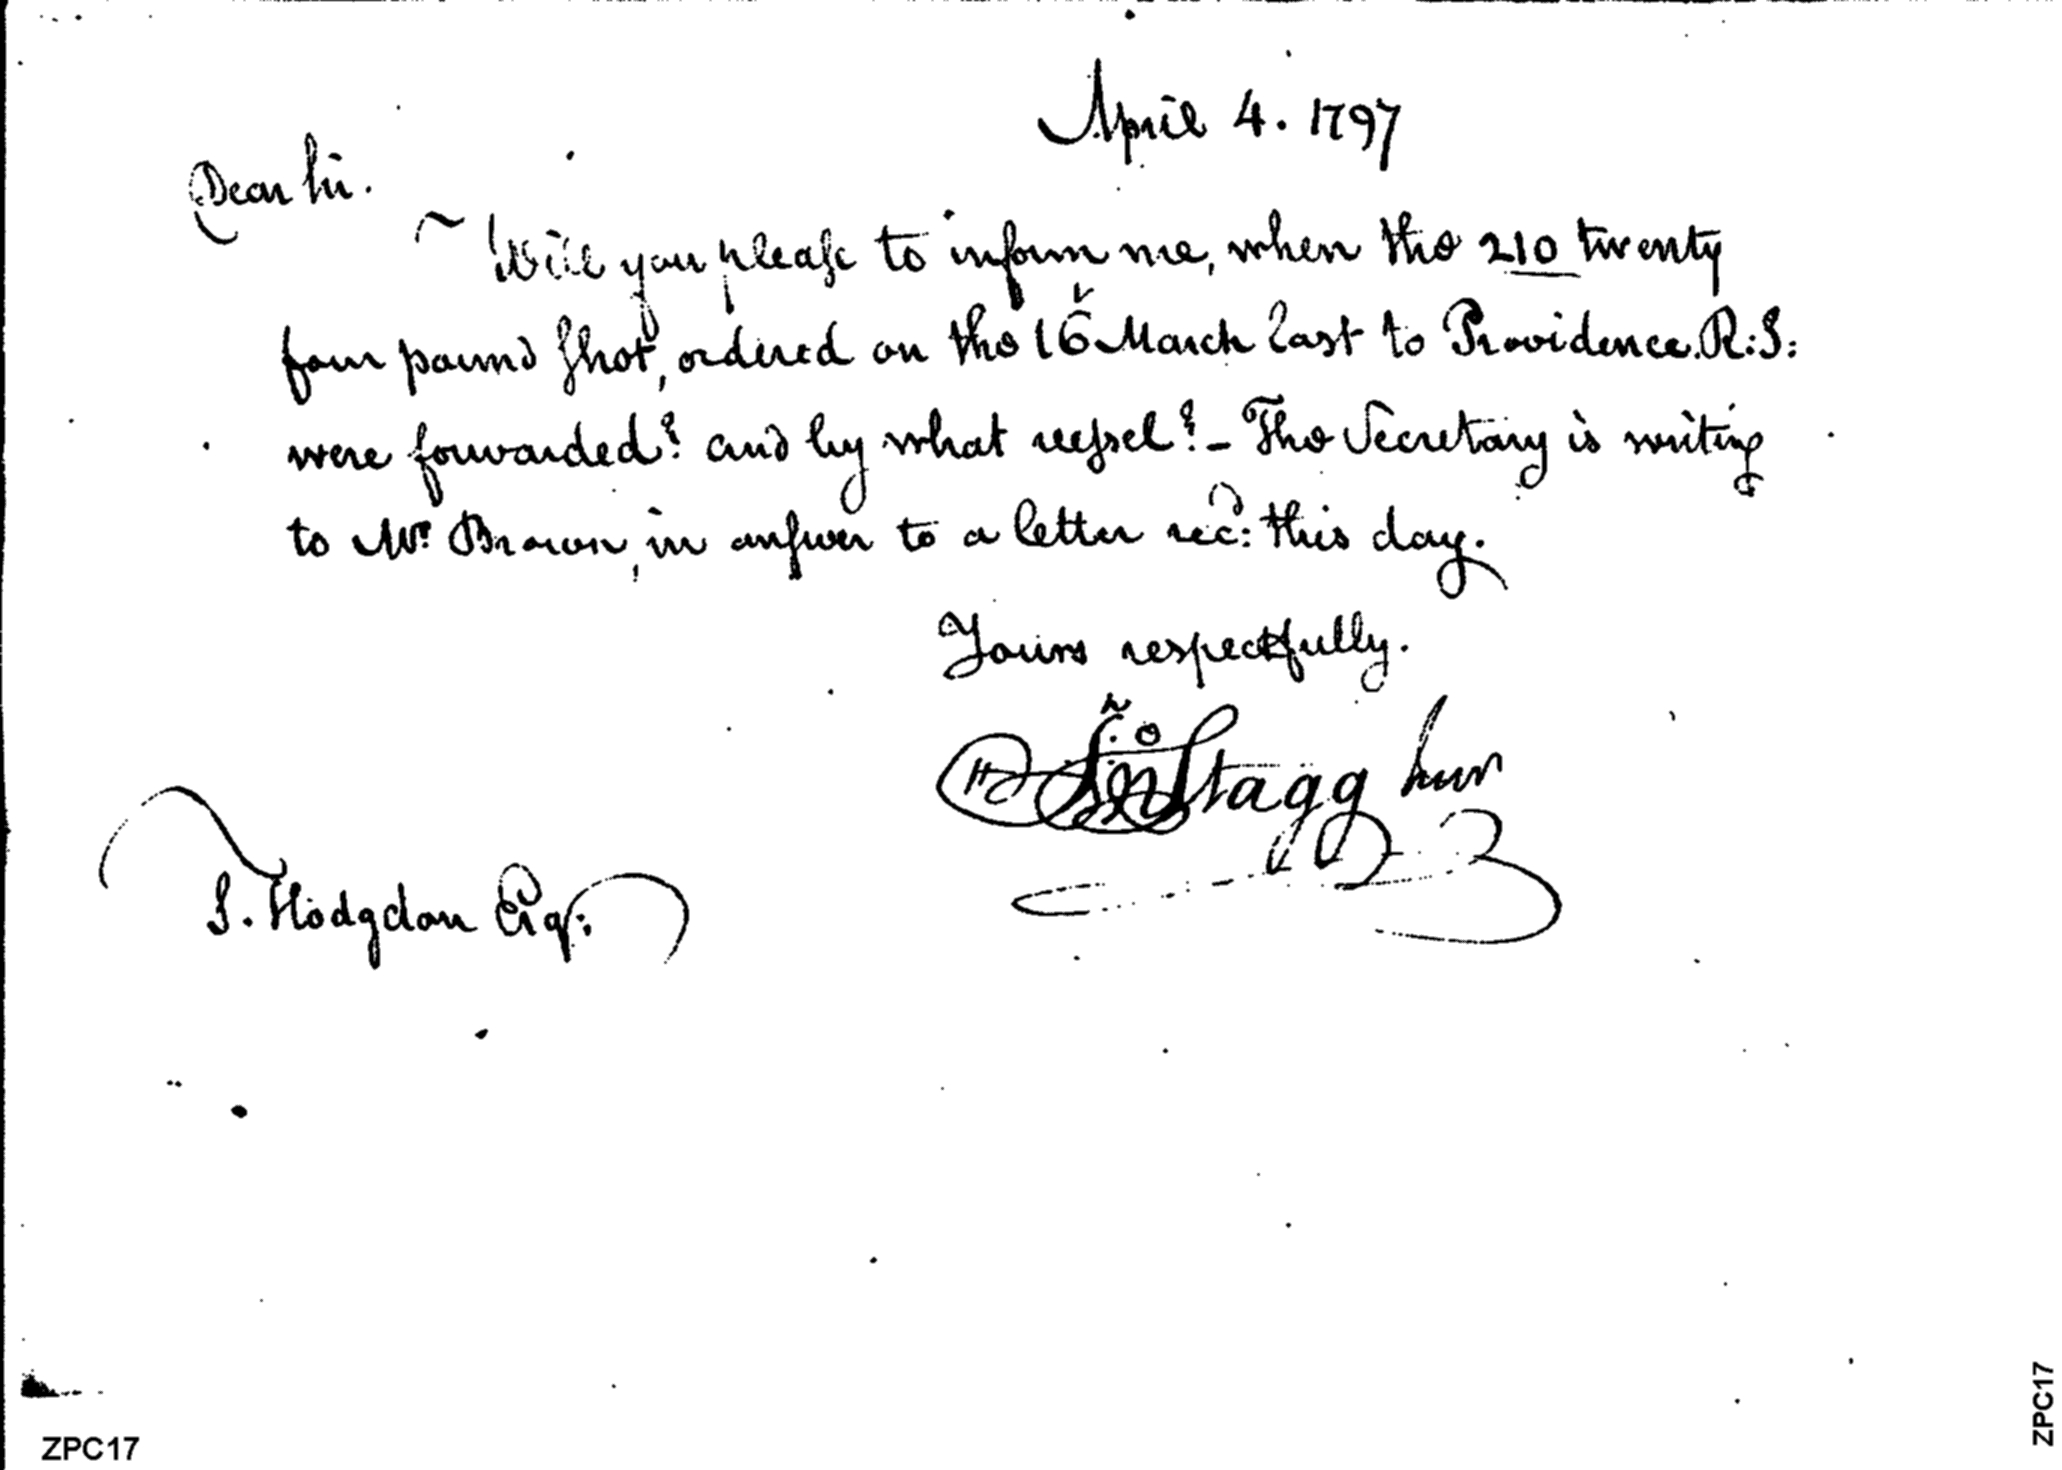 April 4. 1797
Dear Sir.
Will you please to inform me, when the 210 twenty
four pound shot, ordered on the 16 March last to Providence. R: I:
were forwarded? and by what vessel? – The Secretary is writing
to Mr. Brown, in answer to a letter recd: this day.
Yours respectfully.
Jno Stagg Junr
S. Hodgdon Esqr:
ZPC17
ZPC17